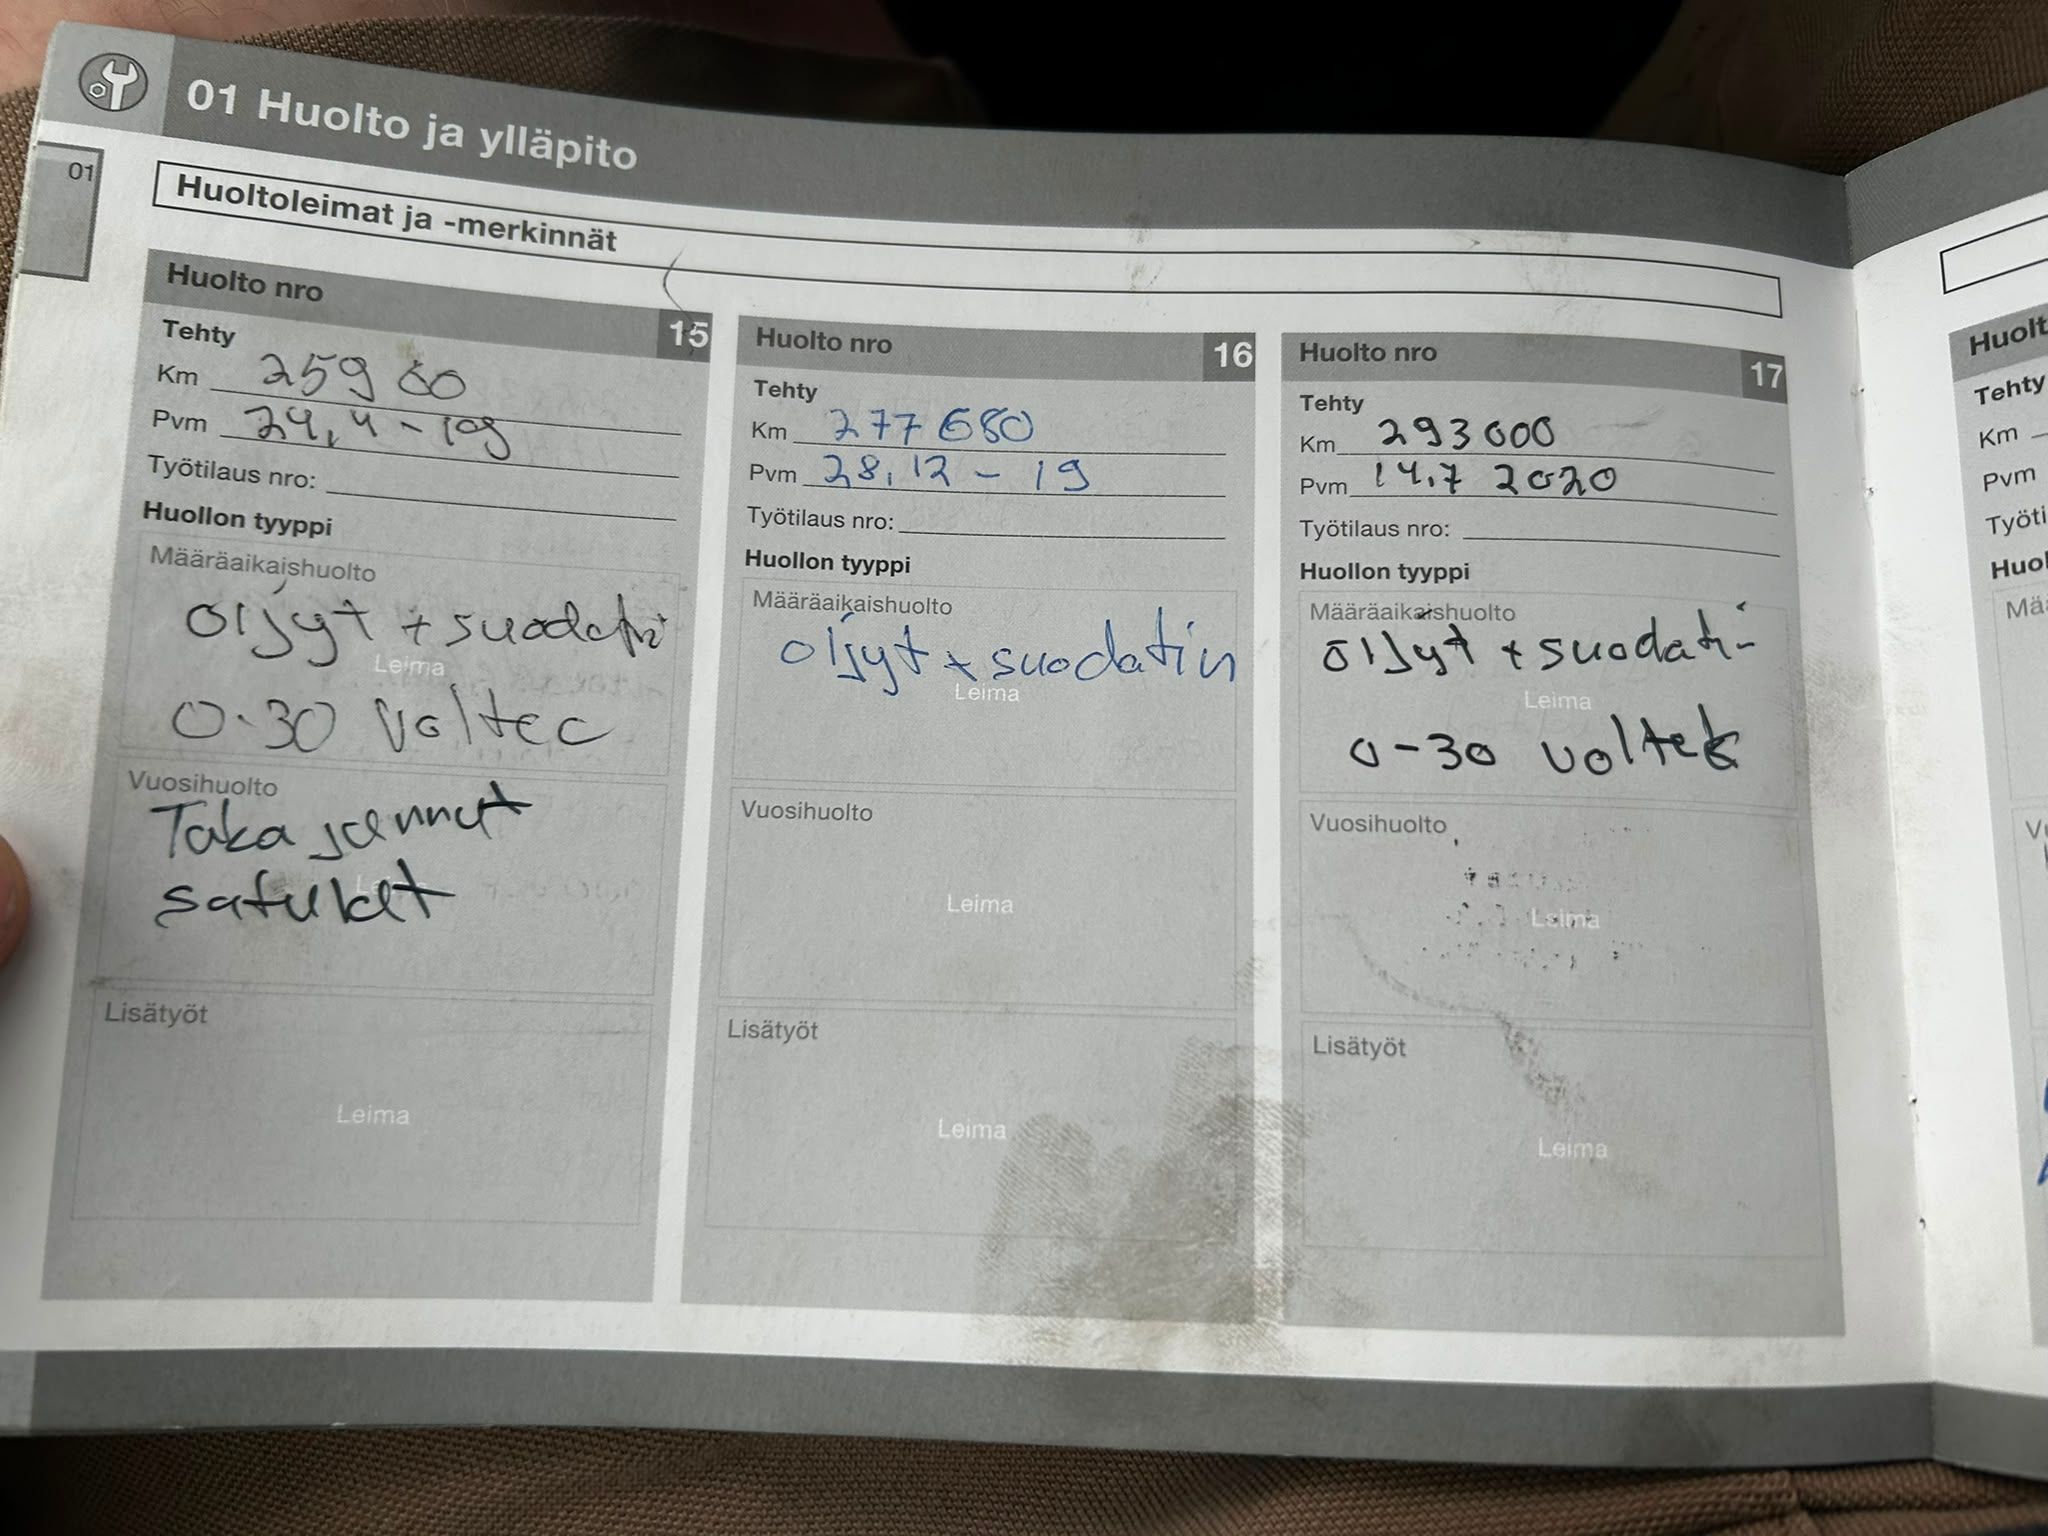 01 Huolto ja ylläpito
01
Huoltoleimat ja -merkinnät
Huolto nro 15
Tehty
Km 259 60
Pvm 24.4 - 19
Työtilaus nro:
Huollon tyyppi
Määräaikaishuolto
öljyt + suodatin
Leima
0-30 Voltec
Vuosihuolto
Taka jannut
satulat
Lisätyöt
Leima
Huolto nro 16
Tehty
Km 277 680
Pvm 28.12 - 19
Työtilaus nro:
Huollon tyyppi
Määräaikaishuolto
öljyt + suodatin
Leima
Vuosihuolto
Leima
Lisätyöt
Leima
Huolto nro 17
Tehty
Km 293 000
Pvm 14.7 2020
Työtilaus nro:
Huollon tyyppi
Määräaikaishuolto
öljyt + suodati-
Leima
0-30 voltek
Vuosihuolto
Leima
Lisätyöt
Leima
Huolt
Tehty
Km
Pvm
Työti
Huol
Mää